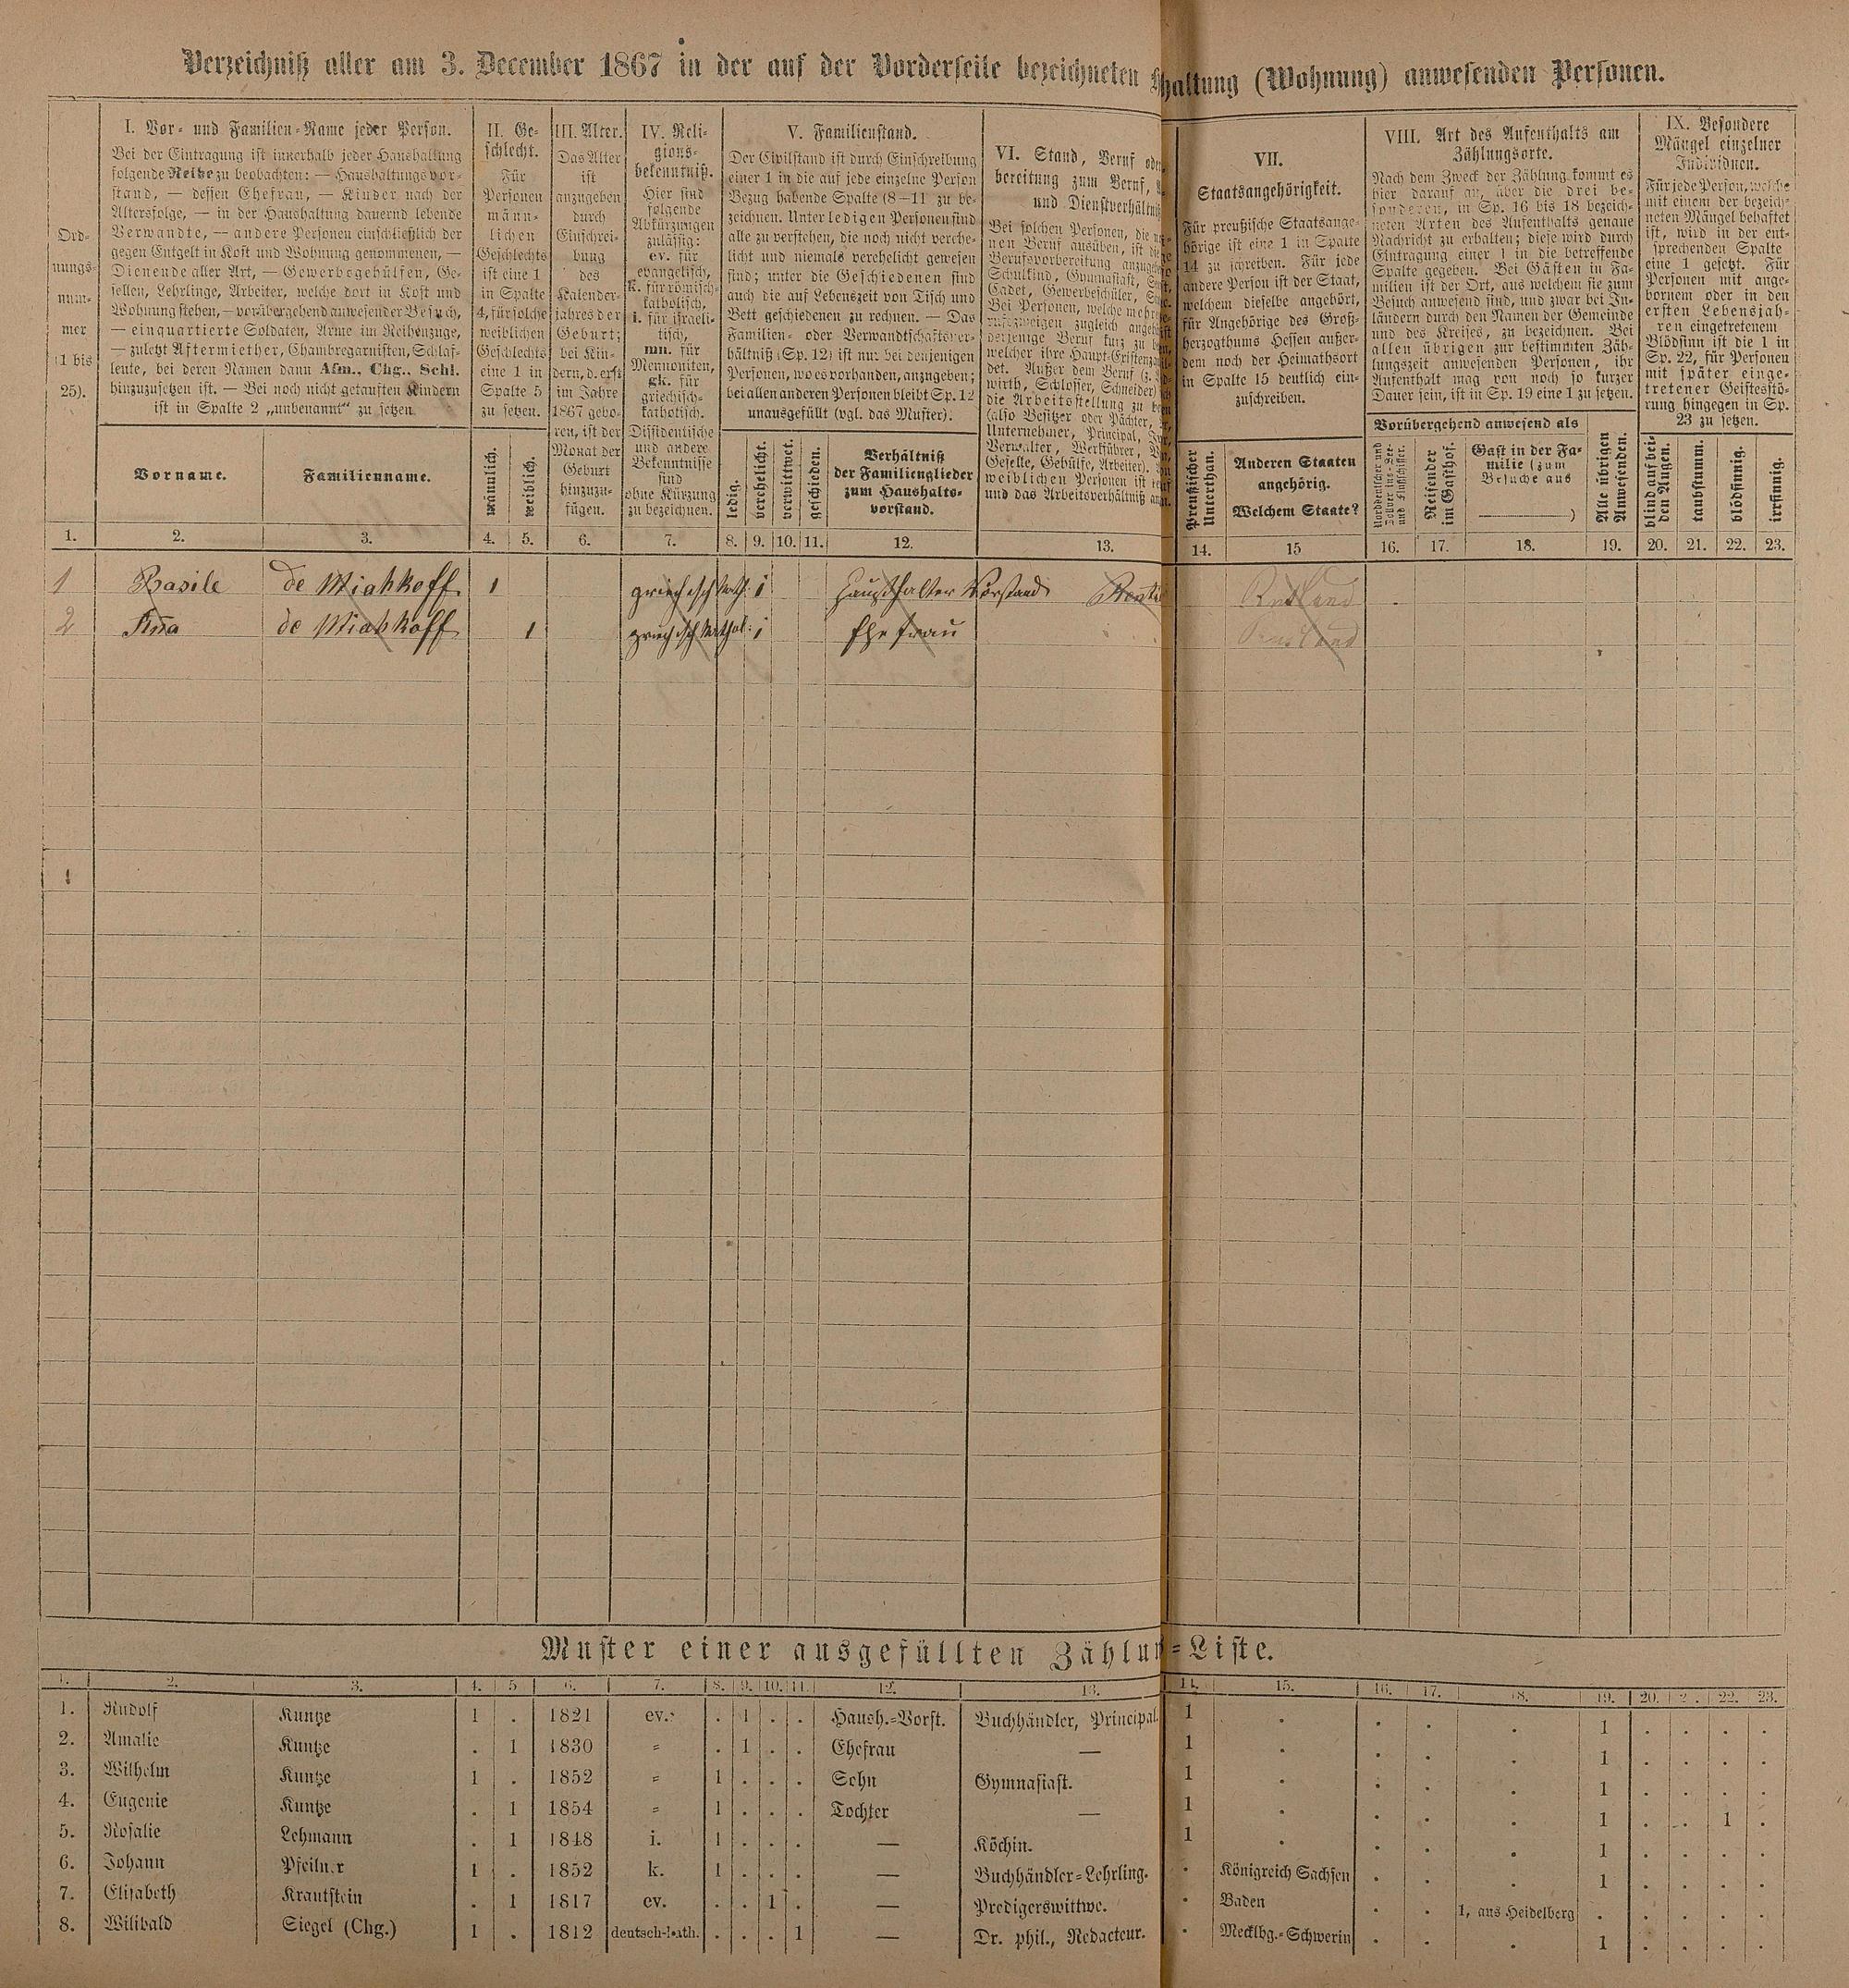 Verzeichniß aller am 3. December 1867 in der auf der Vorderseite bezeichneten haltung (Wohnung) anwesenden Personen.
Ord-
nungs-
num-
mer
(1 bis
25).
I. Vor- und Familien-Name jeder Person.
Bei der Eintragung ist innerhalb jeder Haushaltung
folgende Reihe zu beobachten: — Haushaltungsvor-
stand, — dessen Ehefrau, — Kinder nach der
Altersfolge, — in der Haushaltung dauernd lebende
Verwandte, — andere Personen einschließlich der
gegen Entgelt in Kost und Wohnung genommenen, —
Dienende aller Art, — Gewerbsgehülfen, Ge-
sellen, Lehrlinge, Arbeiter, welche dort in Kost und
Wohnung stehen, — vorübergehend anwesender Besuch,
— einquartierte Soldaten, Arme im Reihenzuge,
— zuletzt Aftermiether, Chambregarnisten, Schlaf-
leute, bei deren Namen dann Afm., Chg., Schl.
hinzuzusetzen ist. — Bei noch nicht getauften Kindern
ist in Spalte 2 „unbenannt“ zu setzen.
Vorname.
Familienname.
II. Ge-
schlecht.
Für
Personen
männ-
lichen
Geschlechts
ist eine 1
in Spalte
4, für solche
weiblichen
Geschlechts
eine 1 in
Spalte 5
zu setzen.
männlich.
weiblich.
III. Alter.
Das Alter
ist
anzugeben
durch
Einschrei-
bung
des
Kalender-
jahres der
Geburt;
bei Kin-
dern, d. erst
im Jahre
1867 gebo-
ren, ist der
Monat der
Geburt
hinzuzu-
fügen.
IV. Reli-
gions-
bekenntniß.
Hier sind
folgende
Abkürzungen
zulässig:
ev. für
evangelisch,
k. für römisch-
katholisch,
i. für israeli-
tisch,
mn. für
Mennoniten,
gk. für
griechisch-
katholisch.
Dissidentische
und andere
Bekenntnisse
sind
ohne Kürzung
zu bezeichnen.
V. Familienstand.
Der Civilstand ist durch Einschreibung
einer 1 in die auf jede einzelne Person
Bezug habende Spalte (8–11) zu be-
zeichnen. Unter ledigen Personen sind
alle zu verstehen, die noch nicht verehe-
licht und niemals verehelicht gewesen
sind; unter die Geschiedenen sind
auch die auf Lebenszeit von Tisch und
Bett geschiedenen zu rechnen. — Das
Familien- oder Verwandtschaftsver-
hältniß (Sp. 12) ist nur bei denjenigen
Personen, wo es vorhanden, anzugeben;
bei allen anderen Personen bleibt Sp. 12
unausgefüllt (vgl. das Muster).
ledig.
verehelicht.
verwittwet.
geschieden.
Verhältniß
der Familienglieder
zum Haushalts-
vorstand.
VI. Stand, Beruf oder
bereitung zum Beruf,
und Dienstverhältniß
Bei solchen Personen, die
nen Beruf ausüben, ist die
Berufsvorbereitung anzugeben
Schulkind, Gymnasiast,
Cadet, Gewerbeschüler,
Bei Personen, welche mehrere
rufszweigen zugleich
derjenige Beruf kurz zu
welcher ihre Haupt-Existenz
det. Außer dem Beruf (z.
wirth, Schlosser, Schneider)
die Arbeitsstellung zu
(also Besitzer oder Pächter,
Unternehmer, Principal,
Verwalter, Werkführer,
Geselle, Gehülfe, Arbeiter).
weiblichen Personen ist
und das Arbeitsverhältniß
VII.
Staatsangehörigkeit.
Für preußische Staatsange-
hörige ist eine 1 in Spalte
14 zu schreiben. Für jede
andere Person ist der Staat,
welchem dieselbe angehört,
für Angehörige des Groß-
herzogthums Hessen außer-
dem noch der Heimathsort
in Spalte 15 deutlich ein-
zuschreiben.
Preußischer
Unterthan.
Anderen Staaten
angehörig.
Welchem Staate?
VIII. Art des Aufenthalts am
Zählungsorte.
Nach dem Zweck der Zählung kommt es
hier darauf an, über die drei be-
sonderen, in Sp. 16 bis 18 bezeich-
neten Arten des Aufenthalts genaue
Nachricht zu erhalten; diese wird durch
Eintragung einer 1 in die betreffende
Spalte gegeben. Bei Gästen in Fa-
milien ist der Ort, aus welchem sie zum
Besuch anwesend sind, und zwar bei In-
ländern durch den Namen der Gemeinde
und des Kreises, zu bezeichnen. Bei
allen übrigen zur bestimmten Zäh-
lungszeit anwesenden Personen, ihr
Aufenthalt mag von noch so kurzer
Dauer sein, ist in Sp. 19 eine 1 zu setzen.
Vorübergehend anwesend als
Reisender
im Gasthof.
Gast in der Fa-
milie (zum
Besuche aus
)
Alle übrigen
Anwesenden.
IX. Besondere
Mängel einzelner
Individuen.
Für jede Person, welche
mit einem der bezeich-
neten Mängel behaftet
ist, wird in der ent-
sprechenden Spalte
eine 1 gesetzt. Für
Personen mit ange-
bornem oder in den
ersten Lebensjah-
ren eingetretenem
Blödsinn ist die 1 in
Sp. 22, für Personen
mit später einge-
tretener Geistesstö-
rung hingegen in Sp.
23 zu setzen.
blind auf bei-
den Augen.
taubstumm.
blödsinnig.
irrsinnig.
1. 2. 3. 4. 5. 6. 7. 8. 9. 10. 11. 12. 13. 14. 15 16. 17. 18. 19. 20. 21. 22. 23.
1 Basile de Miahkoff 1 griechisch kath: 1 Haushalter Vorstand Renti Rußland
2 Ana de Miahkoff 1 griechisch kathol: 1 Ehefrau Rußland
Muster einer ausgefüllten Zählu =Liste.
1. 2. 3. 4. 5 6. 7. 8. 9. 10. 11. 12. 13. 14. 15. 16. 17. 18. 19. 20. 2 . 22. 23.
1. Rudolf Kuntze 1 . 1821 ev. . 1 . . Haush.-Vorst. Buchhändler, Principal. 1 . . . . 1 . . . .
2. Amalie Kuntze . 1 1830 = . 1 . . Ehefrau — 1 . . . . 1 . . . .
3. Wilhelm Kuntze 1 . 1852 = 1 . . . Sohn Gymnasiast. 1 . . . . 1 . . . .
4. Eugenie Kuntze . 1 1854 = 1 . . . Tochter — 1 . . . . 1 . . 1 .
5. Rosalie Lehmann . 1 1848 i. 1 . . . — Köchin. 1 . . . . 1 . . . .
6. Johann Pfeiln.r 1 . 1852 k. 1 . . . — Buchhändler-Lehrling. . Königreich Sachsen . . . 1 . . . .
7. Elisabeth Krautstein . 1 1817 ev. . . 1 . — Predigerswittwe. . Baden . . 1, aus Heidelberg . . . . .
8. Wilibald Siegel (Chg.) 1 . 1812 deutsch-kath. . . . 1 — Dr. phil., Redacteur. . Mecklbg.-Schwerin . . . 1 . . . .